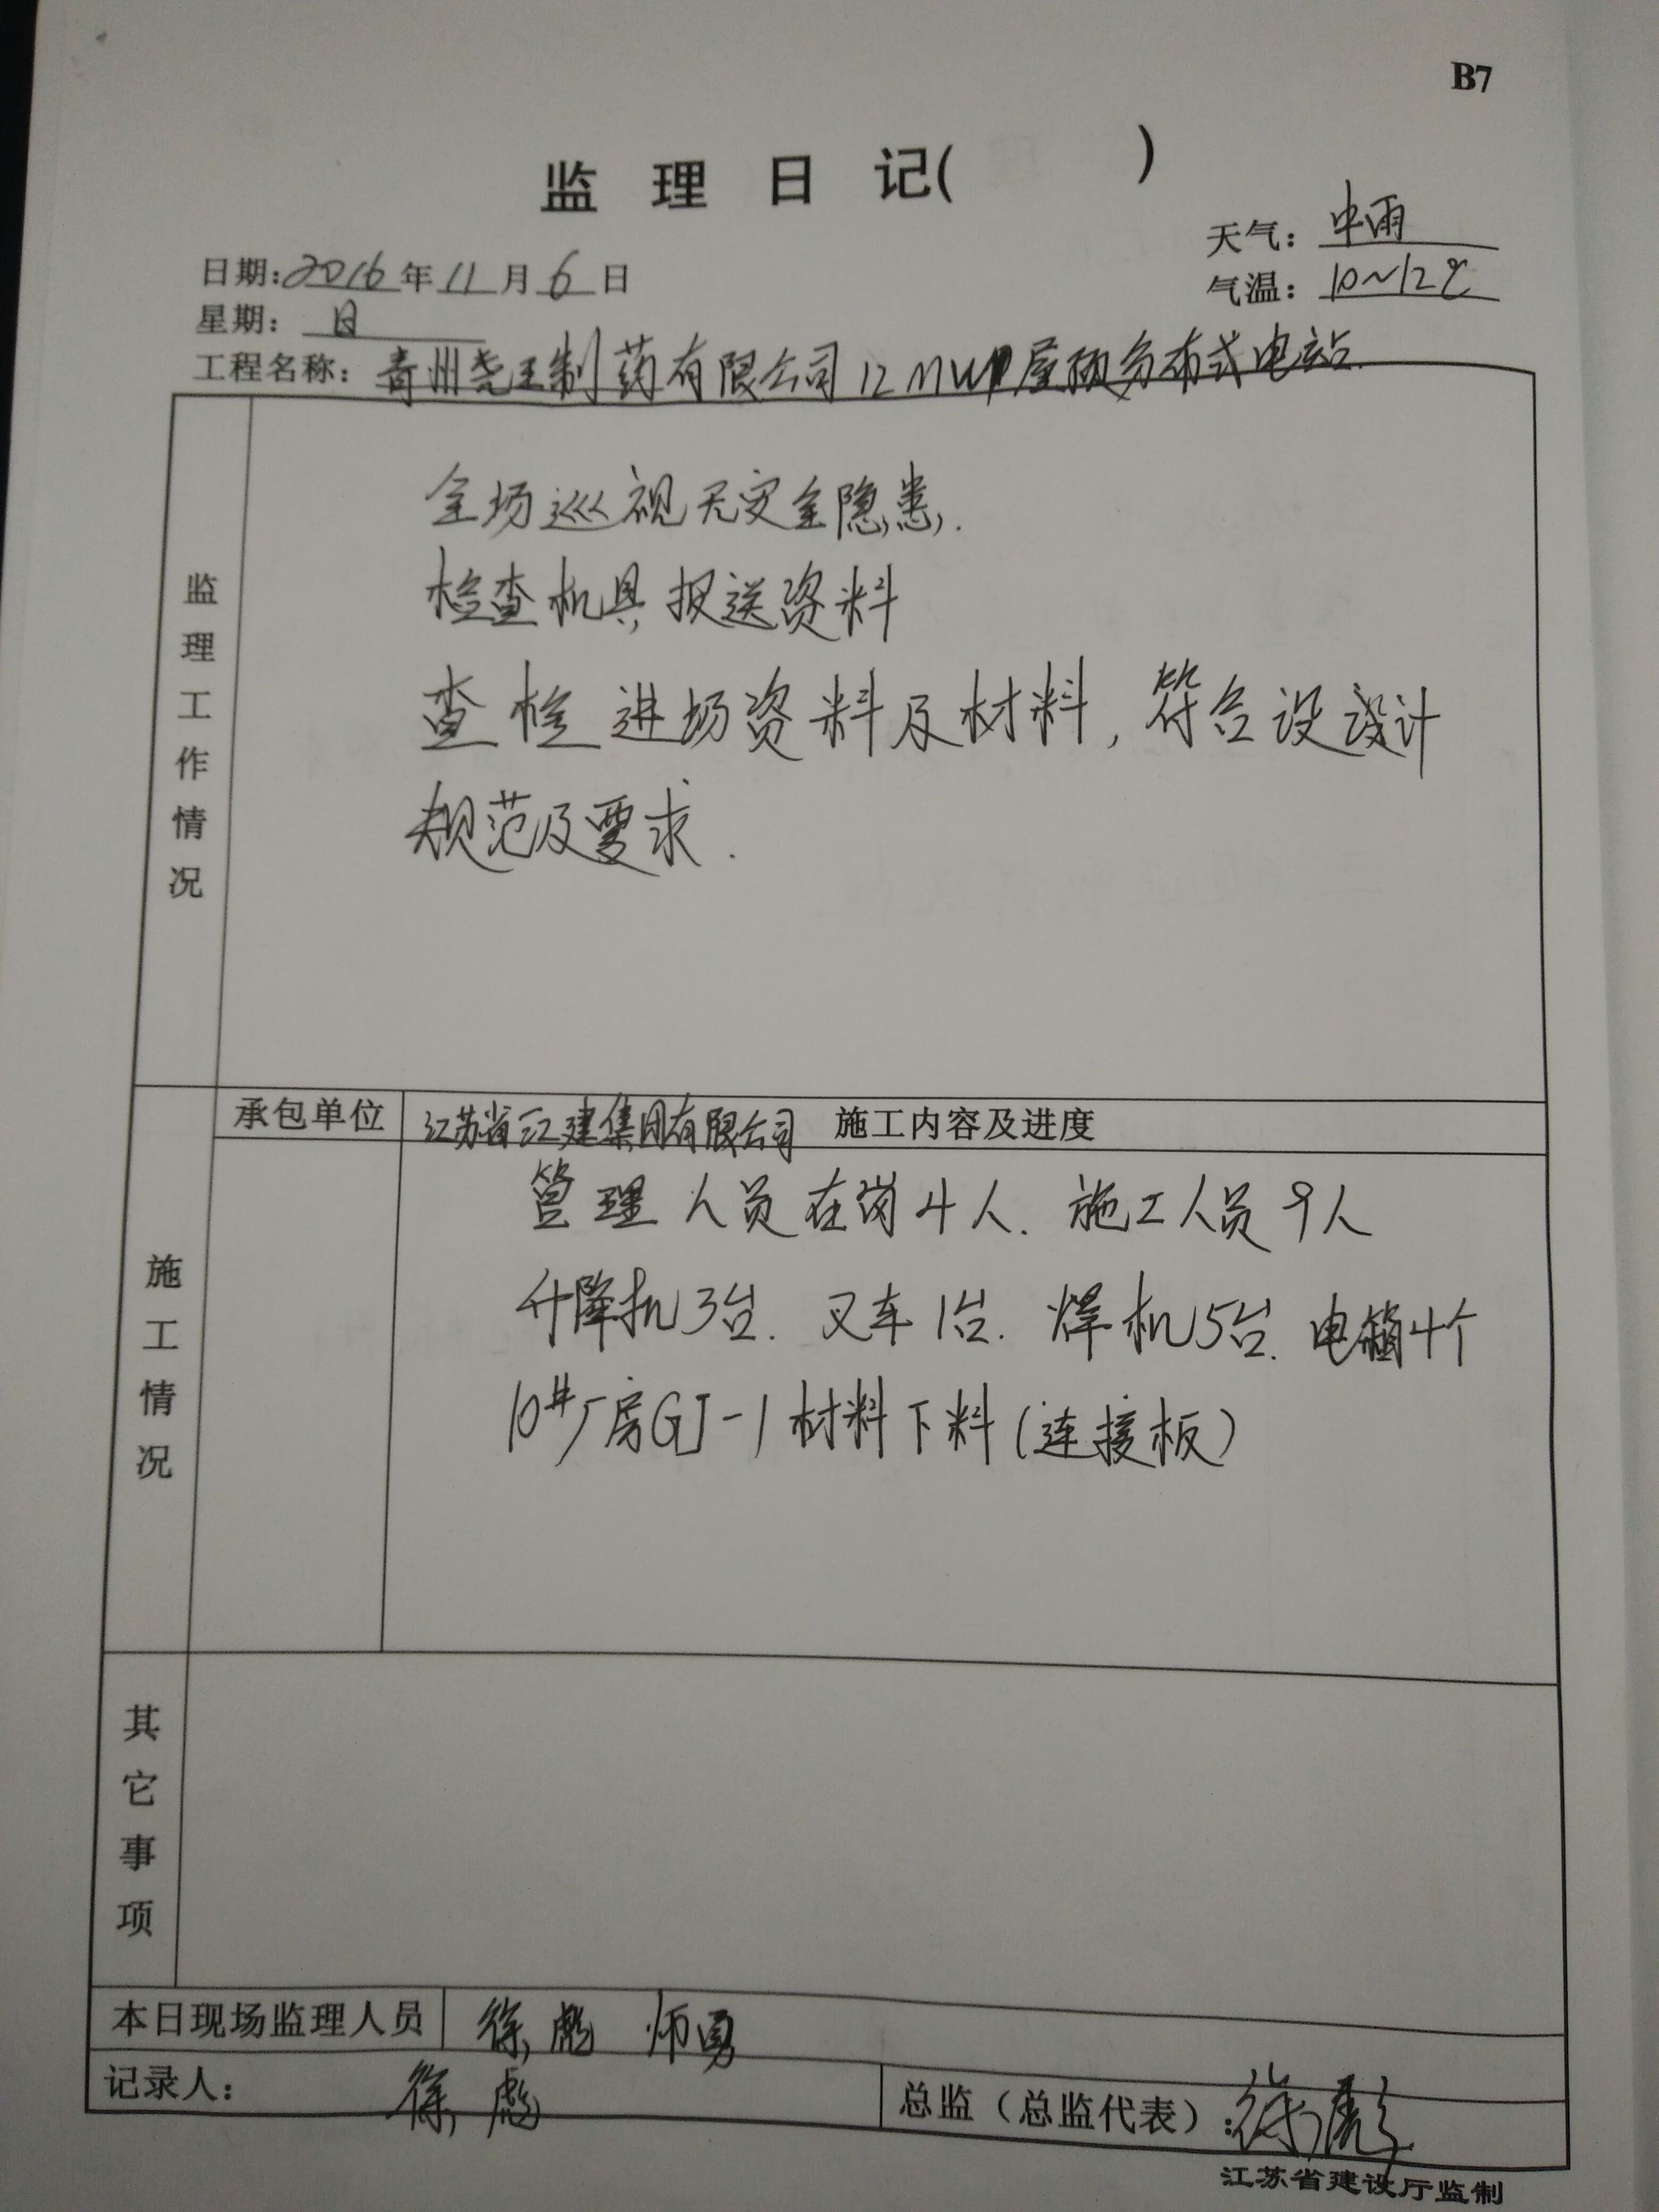 B7
监理日记(　　)
天气：中雨
日期：2016年11月6日
气温：10~12℃
星期：日
工程名称：青州尧王制药有限公司12MWP屋顶分布式电站
监理工作情况
全场巡视无安全隐患.
检查机具报送资料
查检进场资料及材料,符合设设计
规范及要求.
承包单位
江苏省江建集团有限公司 施工内容及进度
施工情况
管理人员在岗4人. 施工人员9人
升降机3台. 叉车1台. 焊机5台. 电箱4个
10#厂房GJ-1材料下料(连接板)
其它事项
本日现场监理人员 徐彪 师勇
记录人： 徐彪
总监（总监代表）：徐彪
江苏省建设厅监制